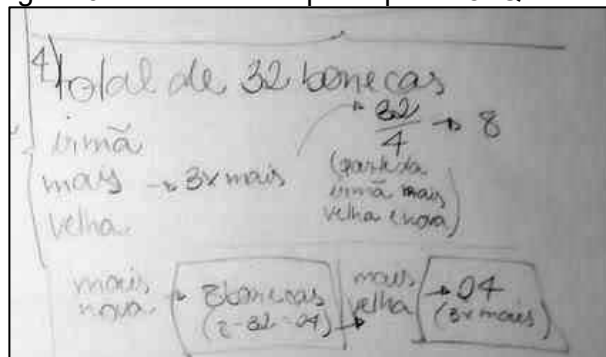 4) total de 32 bonecas
irmã
mais → 3x mais
velha
32/4 → 8
(parte da
irmã mais
velha e nova)
mais
nova → 8 bonecas
(8-32=24) →
mais
velha → 24
(3x mais)